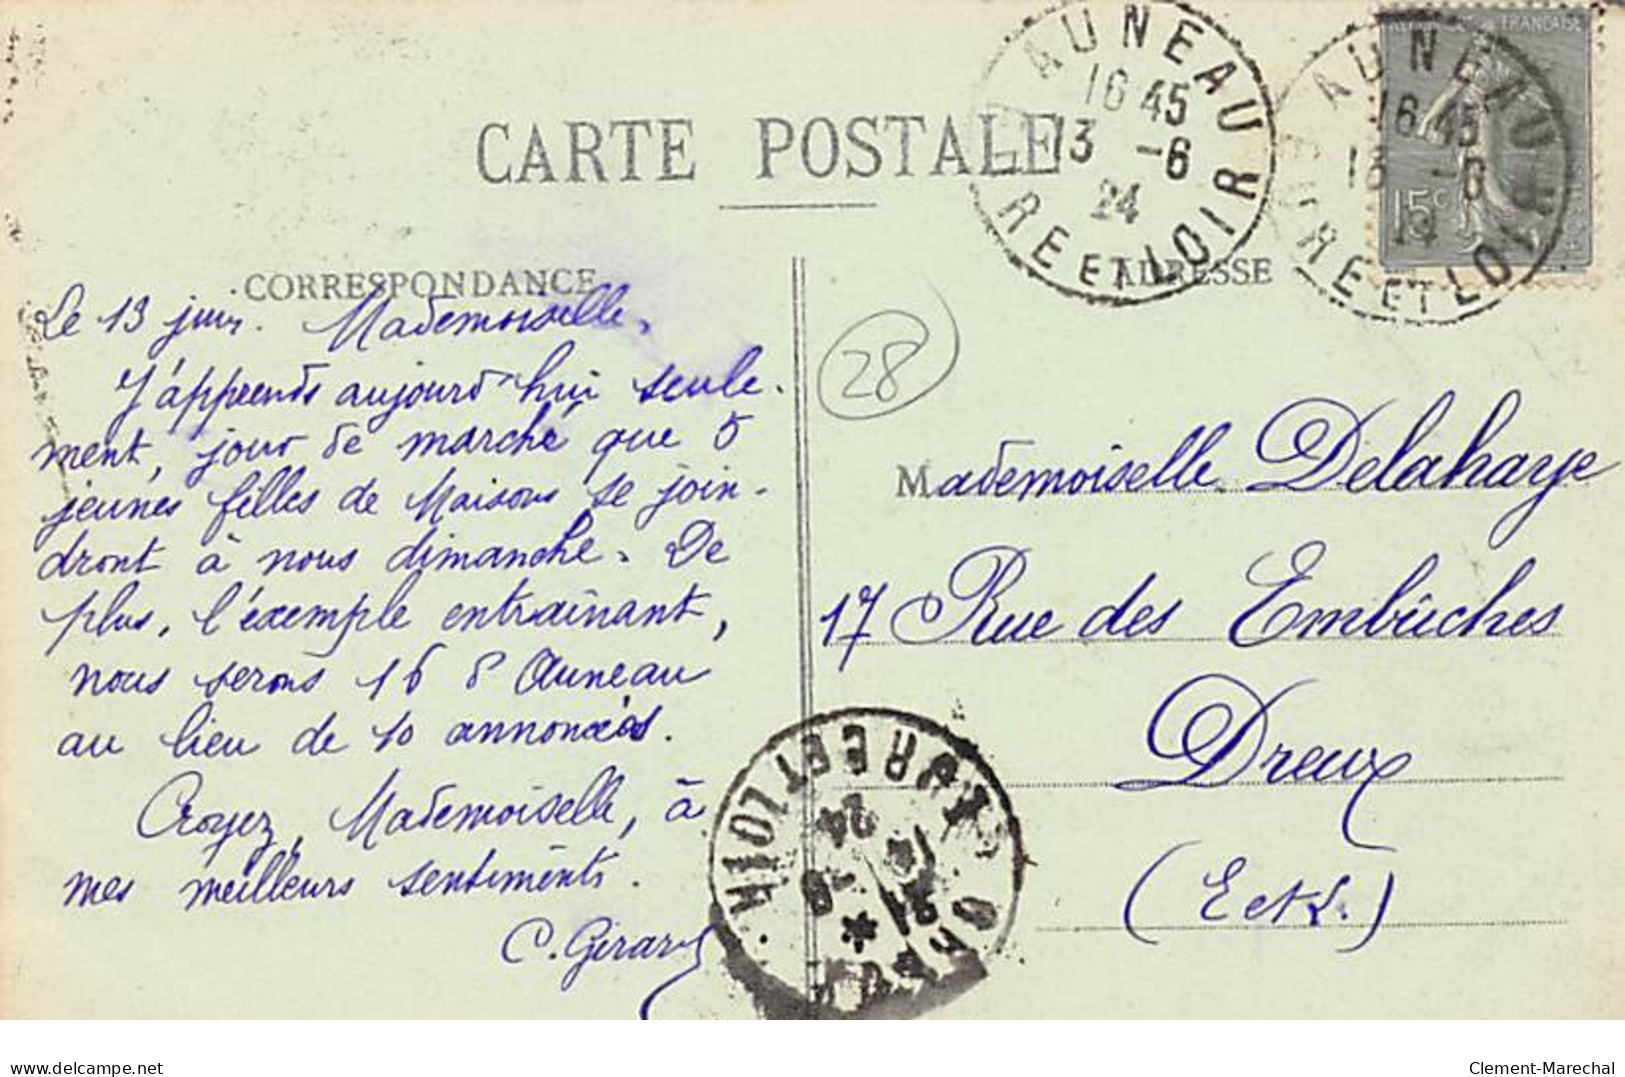 CARTE POSTALE
CORRESPONDANCE
Le 13 juin. Mademoiselle,
J'apprends aujourd'hui seule-
ment, jour de marché que 5
jeunes filles de Maisons se join-
dront à nous dimanche. De
plus, l'exemple entraînant,
nous serons 16 d'Auneau
au lieu de 10 annoncés.
Croyez, Mademoiselle, à
mes meilleurs sentiments.
C. Girard
AUNEAU
16 45
13 -6
24
EURE ET LOIR
AUNEAU
16 45
13 -6
24
EURE ET LOIR
15c
ADRESSE
28
Mademoiselle Delahaye
17 Rue des Embûches
Dreux
(E et L.)
24
delcampe.net
Clement-Marechal